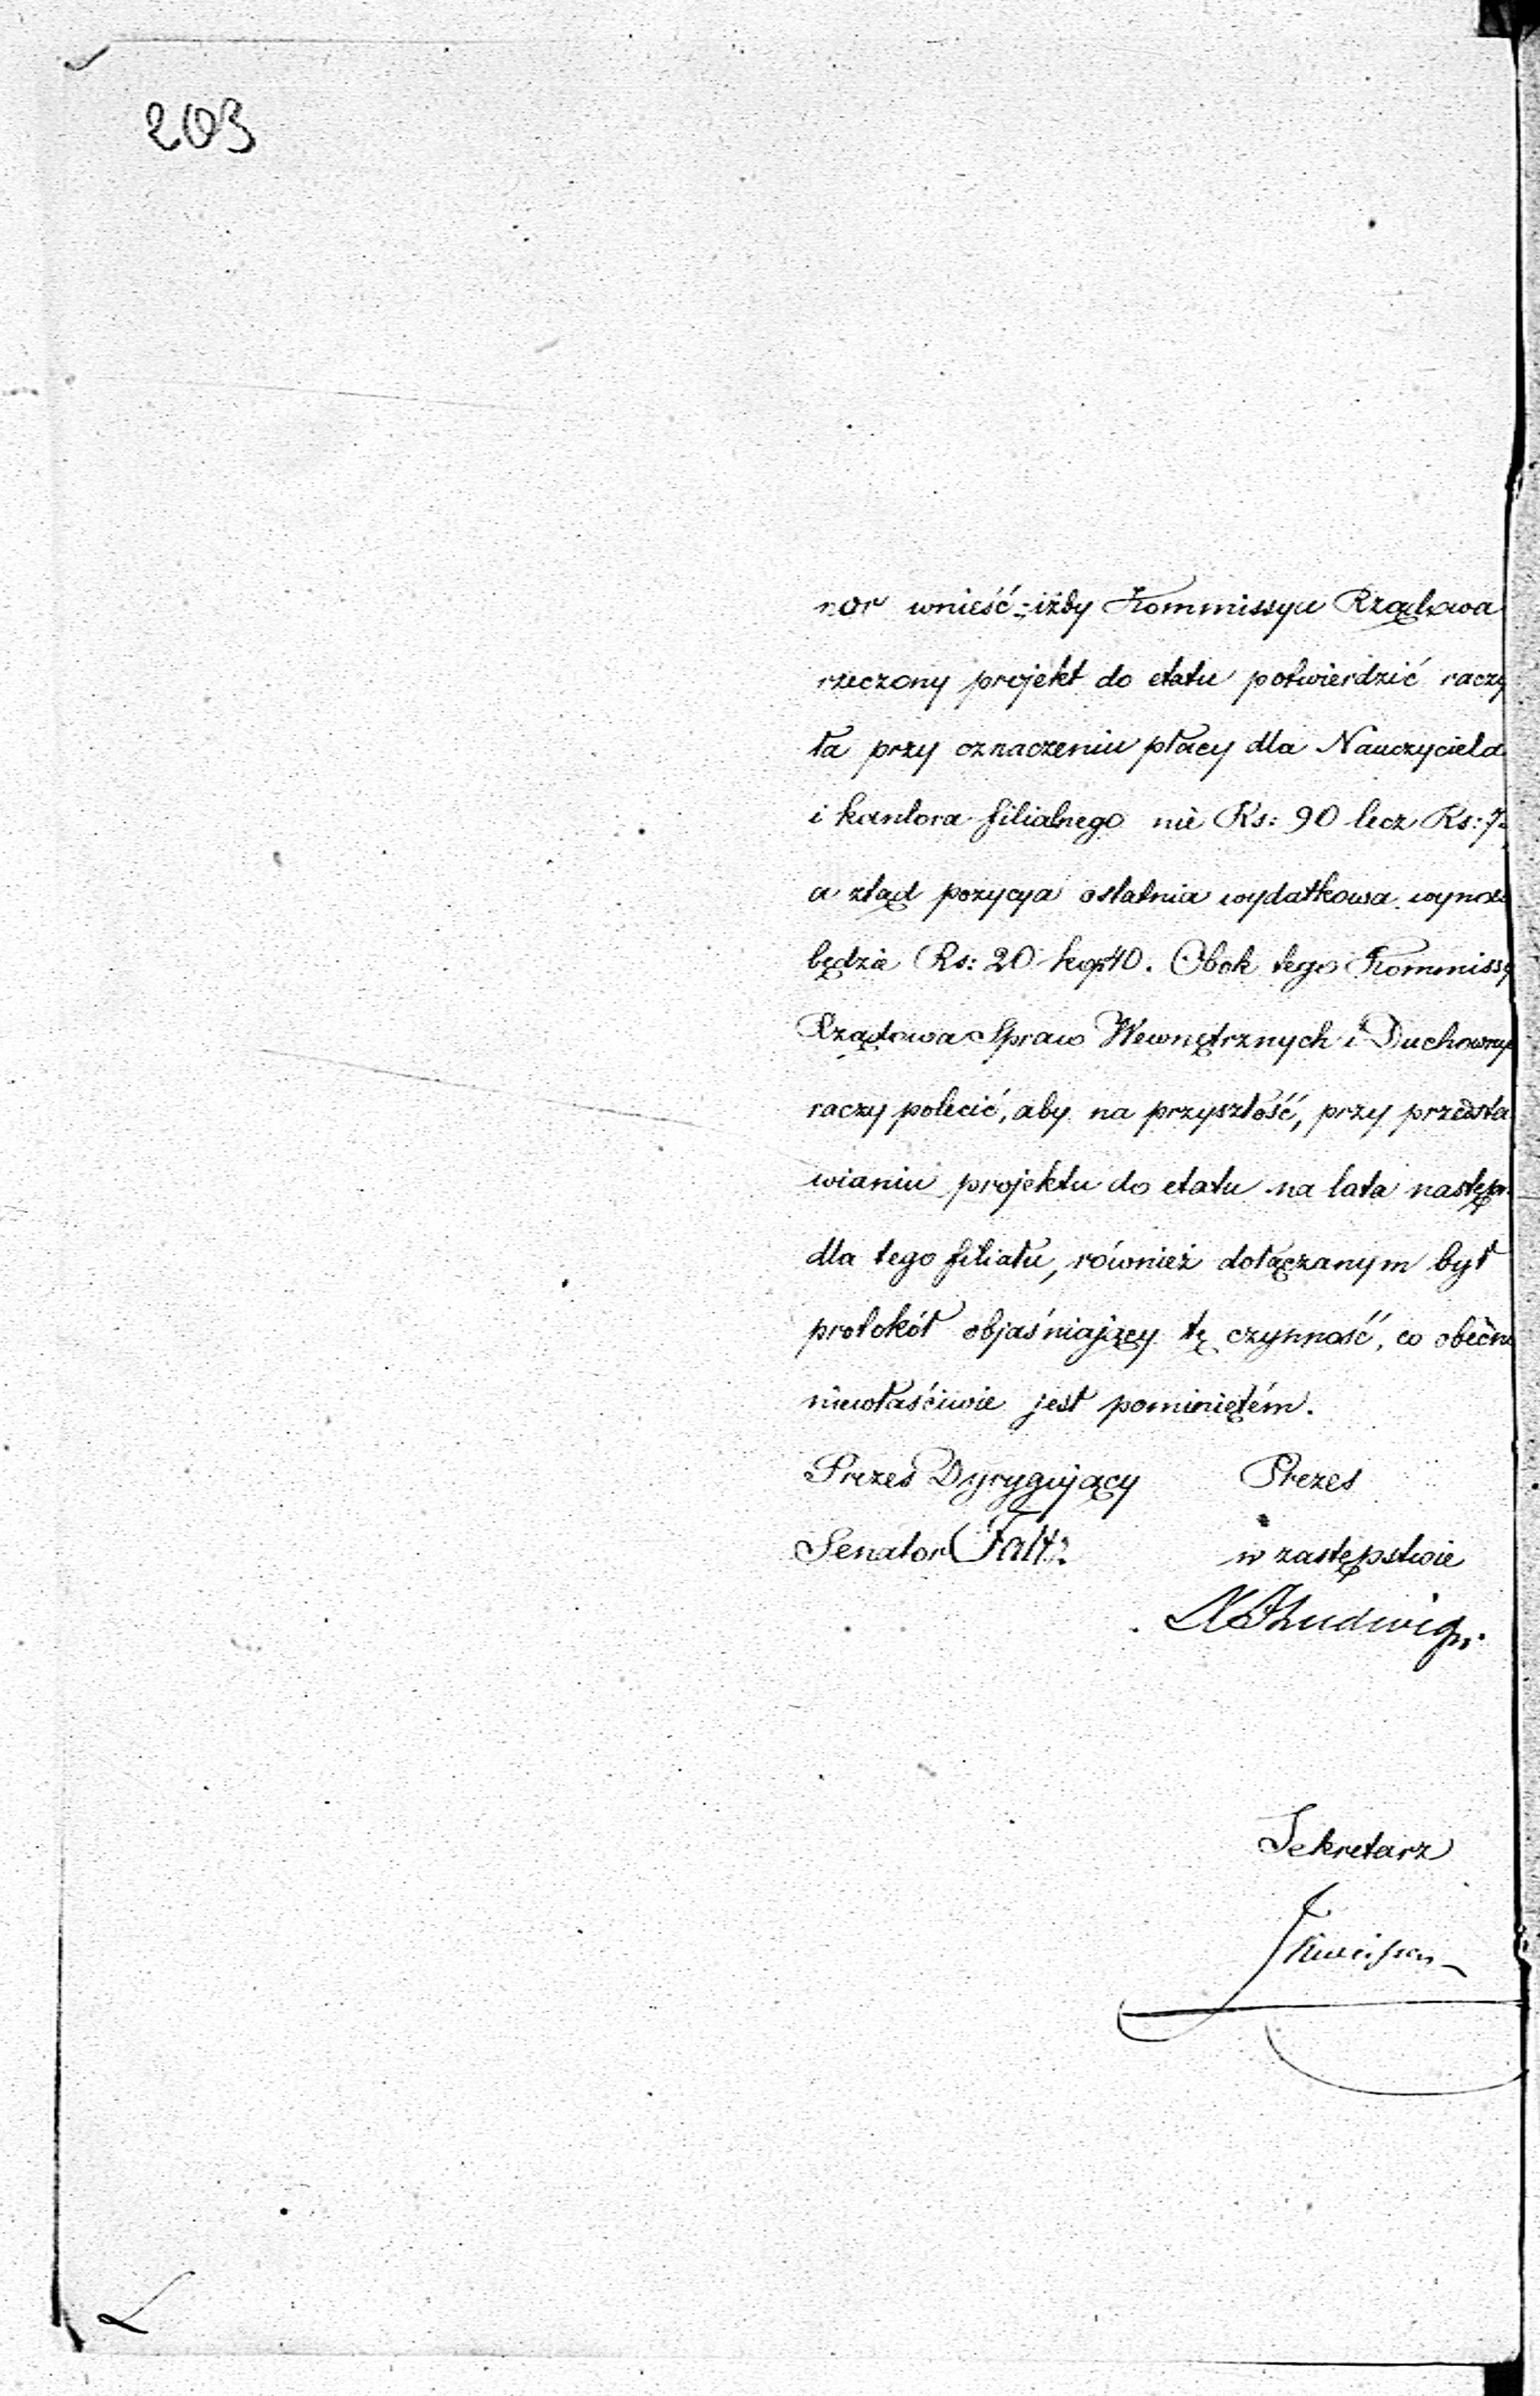 203
nor wnieść: iżby Kommissya Rządowa
rzeczony projekt do etatu potwierdzić raczy
ła przy oznaczeniu płacy dla Nauczyciela
i kantora filialnego nie Rs: 90 lecz Rs: 7
a ztąd pozycya ostatnia wydatkowa wynos
będzie Rs: 20 kop 40. Obok tego Kommissy
Rządowa Spraw Wewnętrznych i Duchowny
raczy polecić, aby na przyszłość, przy przedsta
wianiu projektu do etatu na lata następn
dla tego filiału, również dołączanym był
protokół objaśniający tę czynność, co obecn
niewłaściwie jest pominiętém.
Prezes Dyrygujący Prezes
Senator w zastępstwie
Ludwig
Sekretarz